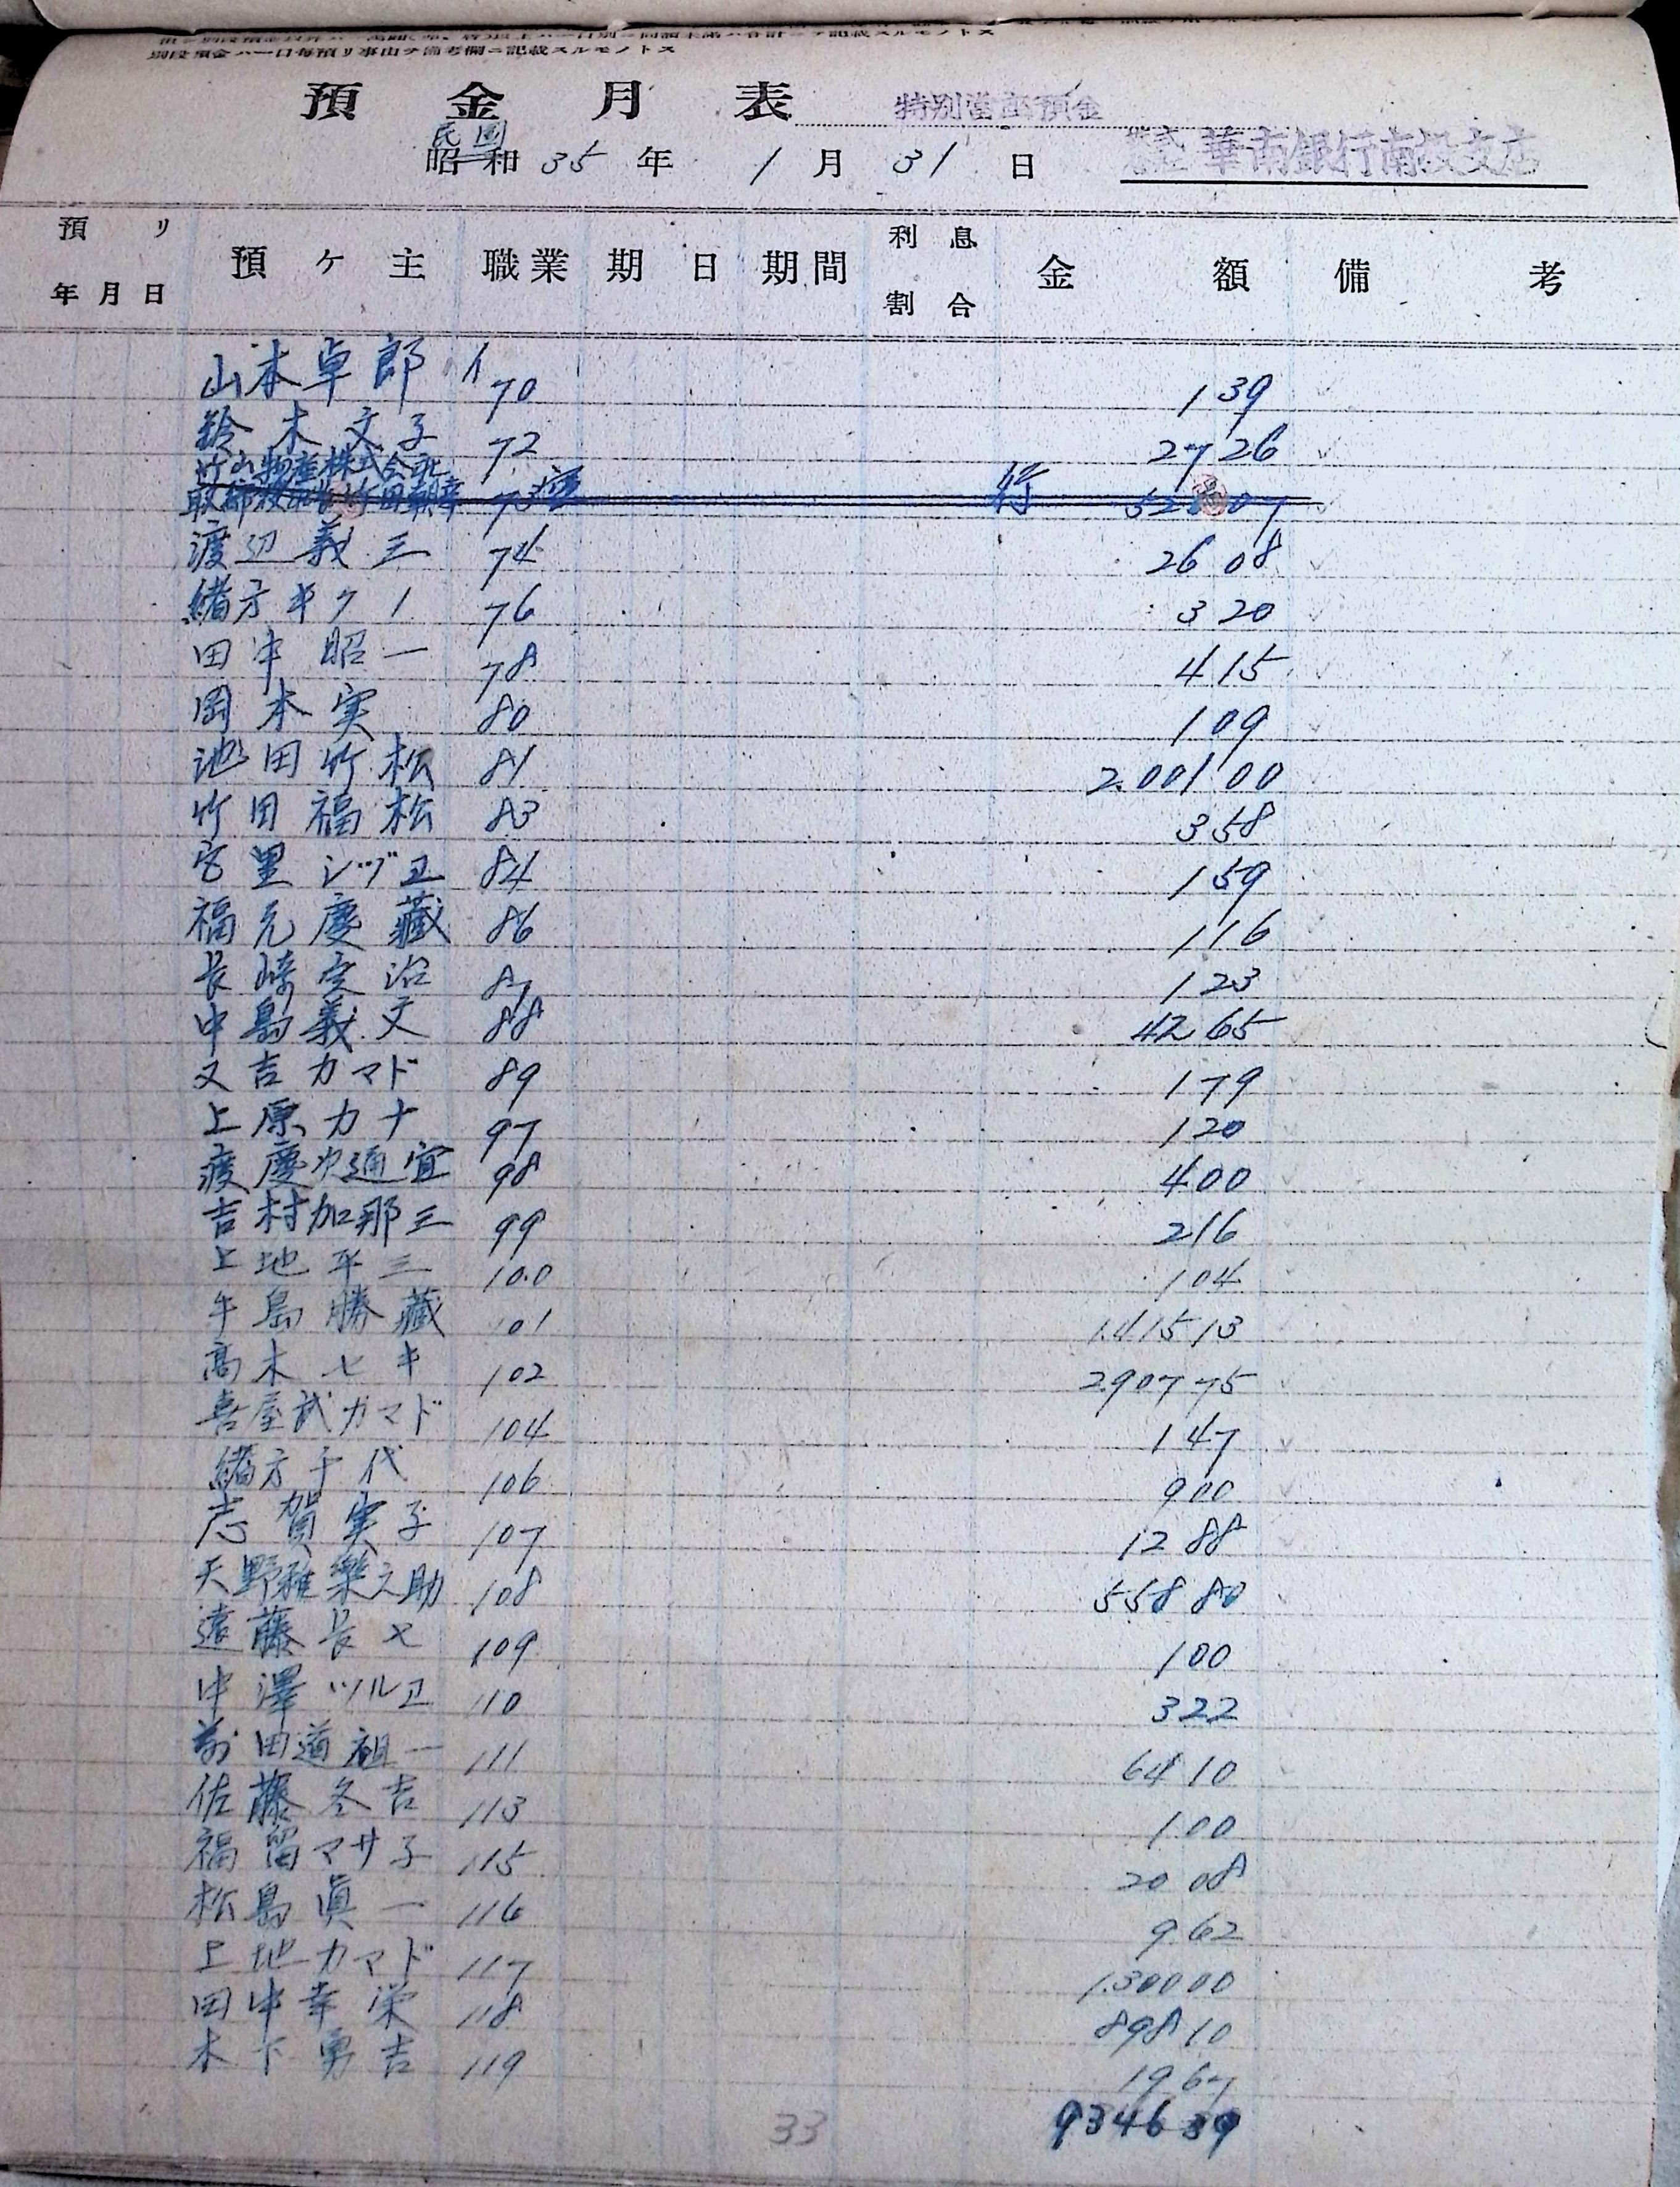 別段預金ハ一口每預リ事由ヲ備考欄ニ記載スルモノトス
預金月表 特別當座預金
民国
昭和35年1月31日 株式会社 華南銀行南投支店
預リ年月日 預ケ主 職業 期日 期間 利息割合 金額 備考
山本卓郎 70 139
鈴木文子 72 2726
竹山物産株式会社
取締役社長竹田 73 52807
渡辺義三 74 2608
緒方キクノ 76 320
田中昭一 78 415
岡本実 80 109
池田竹松 81 2.00100
竹田福松 83 358
宮里シヅヱ 84 159
福元慶藏 86 116
長崎実治 87 123
中島義文 88 4265
又吉カマド 89 179
上原カナ 97 120
渡慶次通宜 98 400
吉村加那三 99 216
上地平三 100 104
牛島勝藏 101 1.41513
高木セキ 102 2.90775
喜屋武カマド 104 147
緒方千代 106 900
志賀実子 107 1288
天野雅樂之助 108 55880
遠藤長又 109 100
中澤ツルヱ 110 322
前田道祖一 111 6410
佐藤冬吉 113 100
福留マサ子 115 2008
松島眞一 116 962
上地カマド 117 1.30000
田中幸栄 118 89810
木下勇吉 119 1967
33 934639